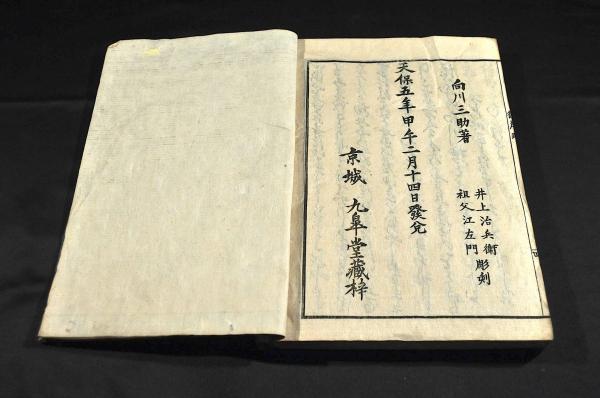 向川三助著
井上治兵衛 彫刻
祖父江左門
天保五年甲午二月十四日發兌
京城 九皐堂藏梓